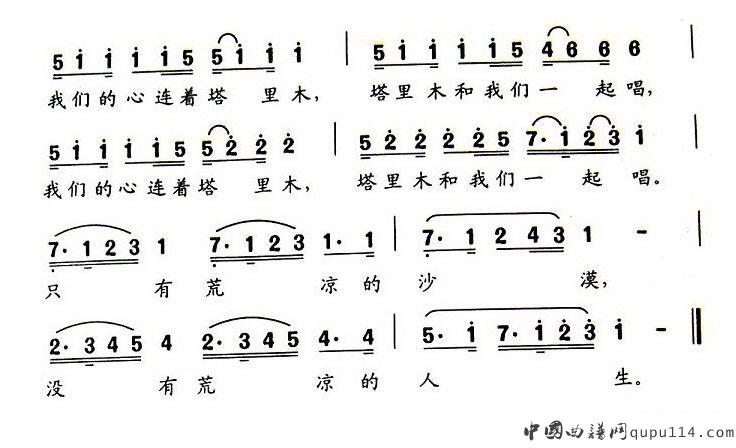 5 i i i i 5 5 i i i | 5 i i i i 5 4 6 6 6 |
我们的心连着塔 里木, 塔里木和我们一 起唱,
5 i i i i 5 5 2̇ 2̇ 2̇ | 5 2̇ 2̇ 2̇ 2̇ 5 7· i 2̇ 3̇ i |
我们的心连着塔 里木, 塔里木和我们一 起 唱。
7̣· 1 2 3 1 7̣· 1 2 3 1· 1 | 7̣· 1 2 4 3 1 - |
只 有荒 凉的沙 漠,
2· 3 4 5 4 2· 3 4 5 4· 4 | 5· i 7· i 2̇ 3̇ i - ‖
没 有荒 凉的人 生。
中國曲譜网qupu114.com